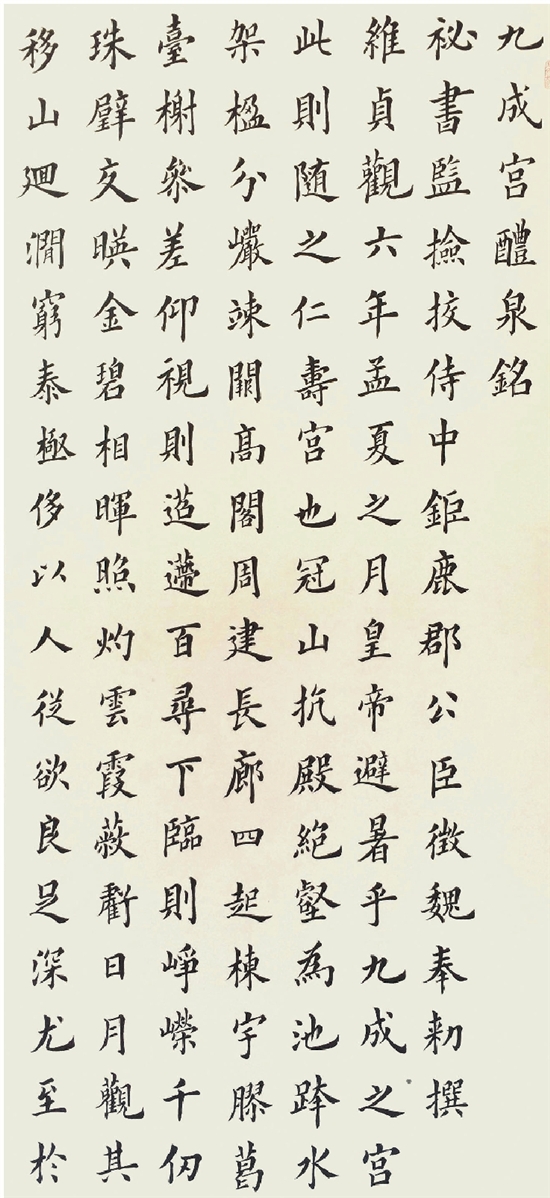 九成宮醴泉銘
祕書監撿挍侍中鉅鹿郡公臣徵魏奉勅撰
維貞觀六年孟夏之月皇帝避暑乎九成之宮
此則随之仁壽宮也冠山抗殿絕壑為池跨水
架楹分巗竦闕高閣周建長廊四起棟宇膠葛
臺榭參差仰視則迢遰百尋下臨則崢嶸千仞
珠璧交暎金碧相暉照灼雲霞蔽虧日月觀其
移山迴澗窮泰極侈以人從欲良足深尤至於